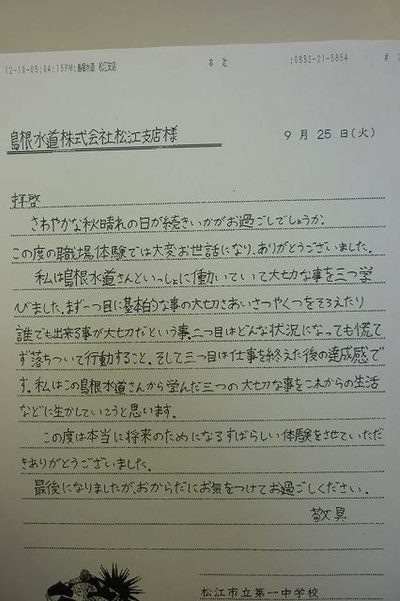 12-10-05;04:15PM;島根水道 松江支店 本社 ;0852-21-5854 #
島根水道株式会社松江支店様 9月25日(火)
拝啓
さわやかな秋晴れの日が続きいかがお過ごしでしょうか。
この度の職場体験では大変お世話になり、ありがとうございました。
私は島根水道さんといっしょに働いていて大切な事を三つ学
びました。まず一つ目に基本的な事の大切さあいさつやくつをそろえたり
誰でも出来る事が大切だという事。二つ目はどんな状況になっても慌て
ず落ちついて行動すること。そして三つ目は仕事を終えた後の達成感で
す。私はこの島根水道さんから学んだ三つの大切な事をこれからの生活
などに生かしていこうと思います。
この度は本当に将来のためになるすばらしい体験をさせていただ
きありがとうございました。
最後になりましたが、おからだにお気をつけてお過ごしください。
敬具
松江市立第一中学校